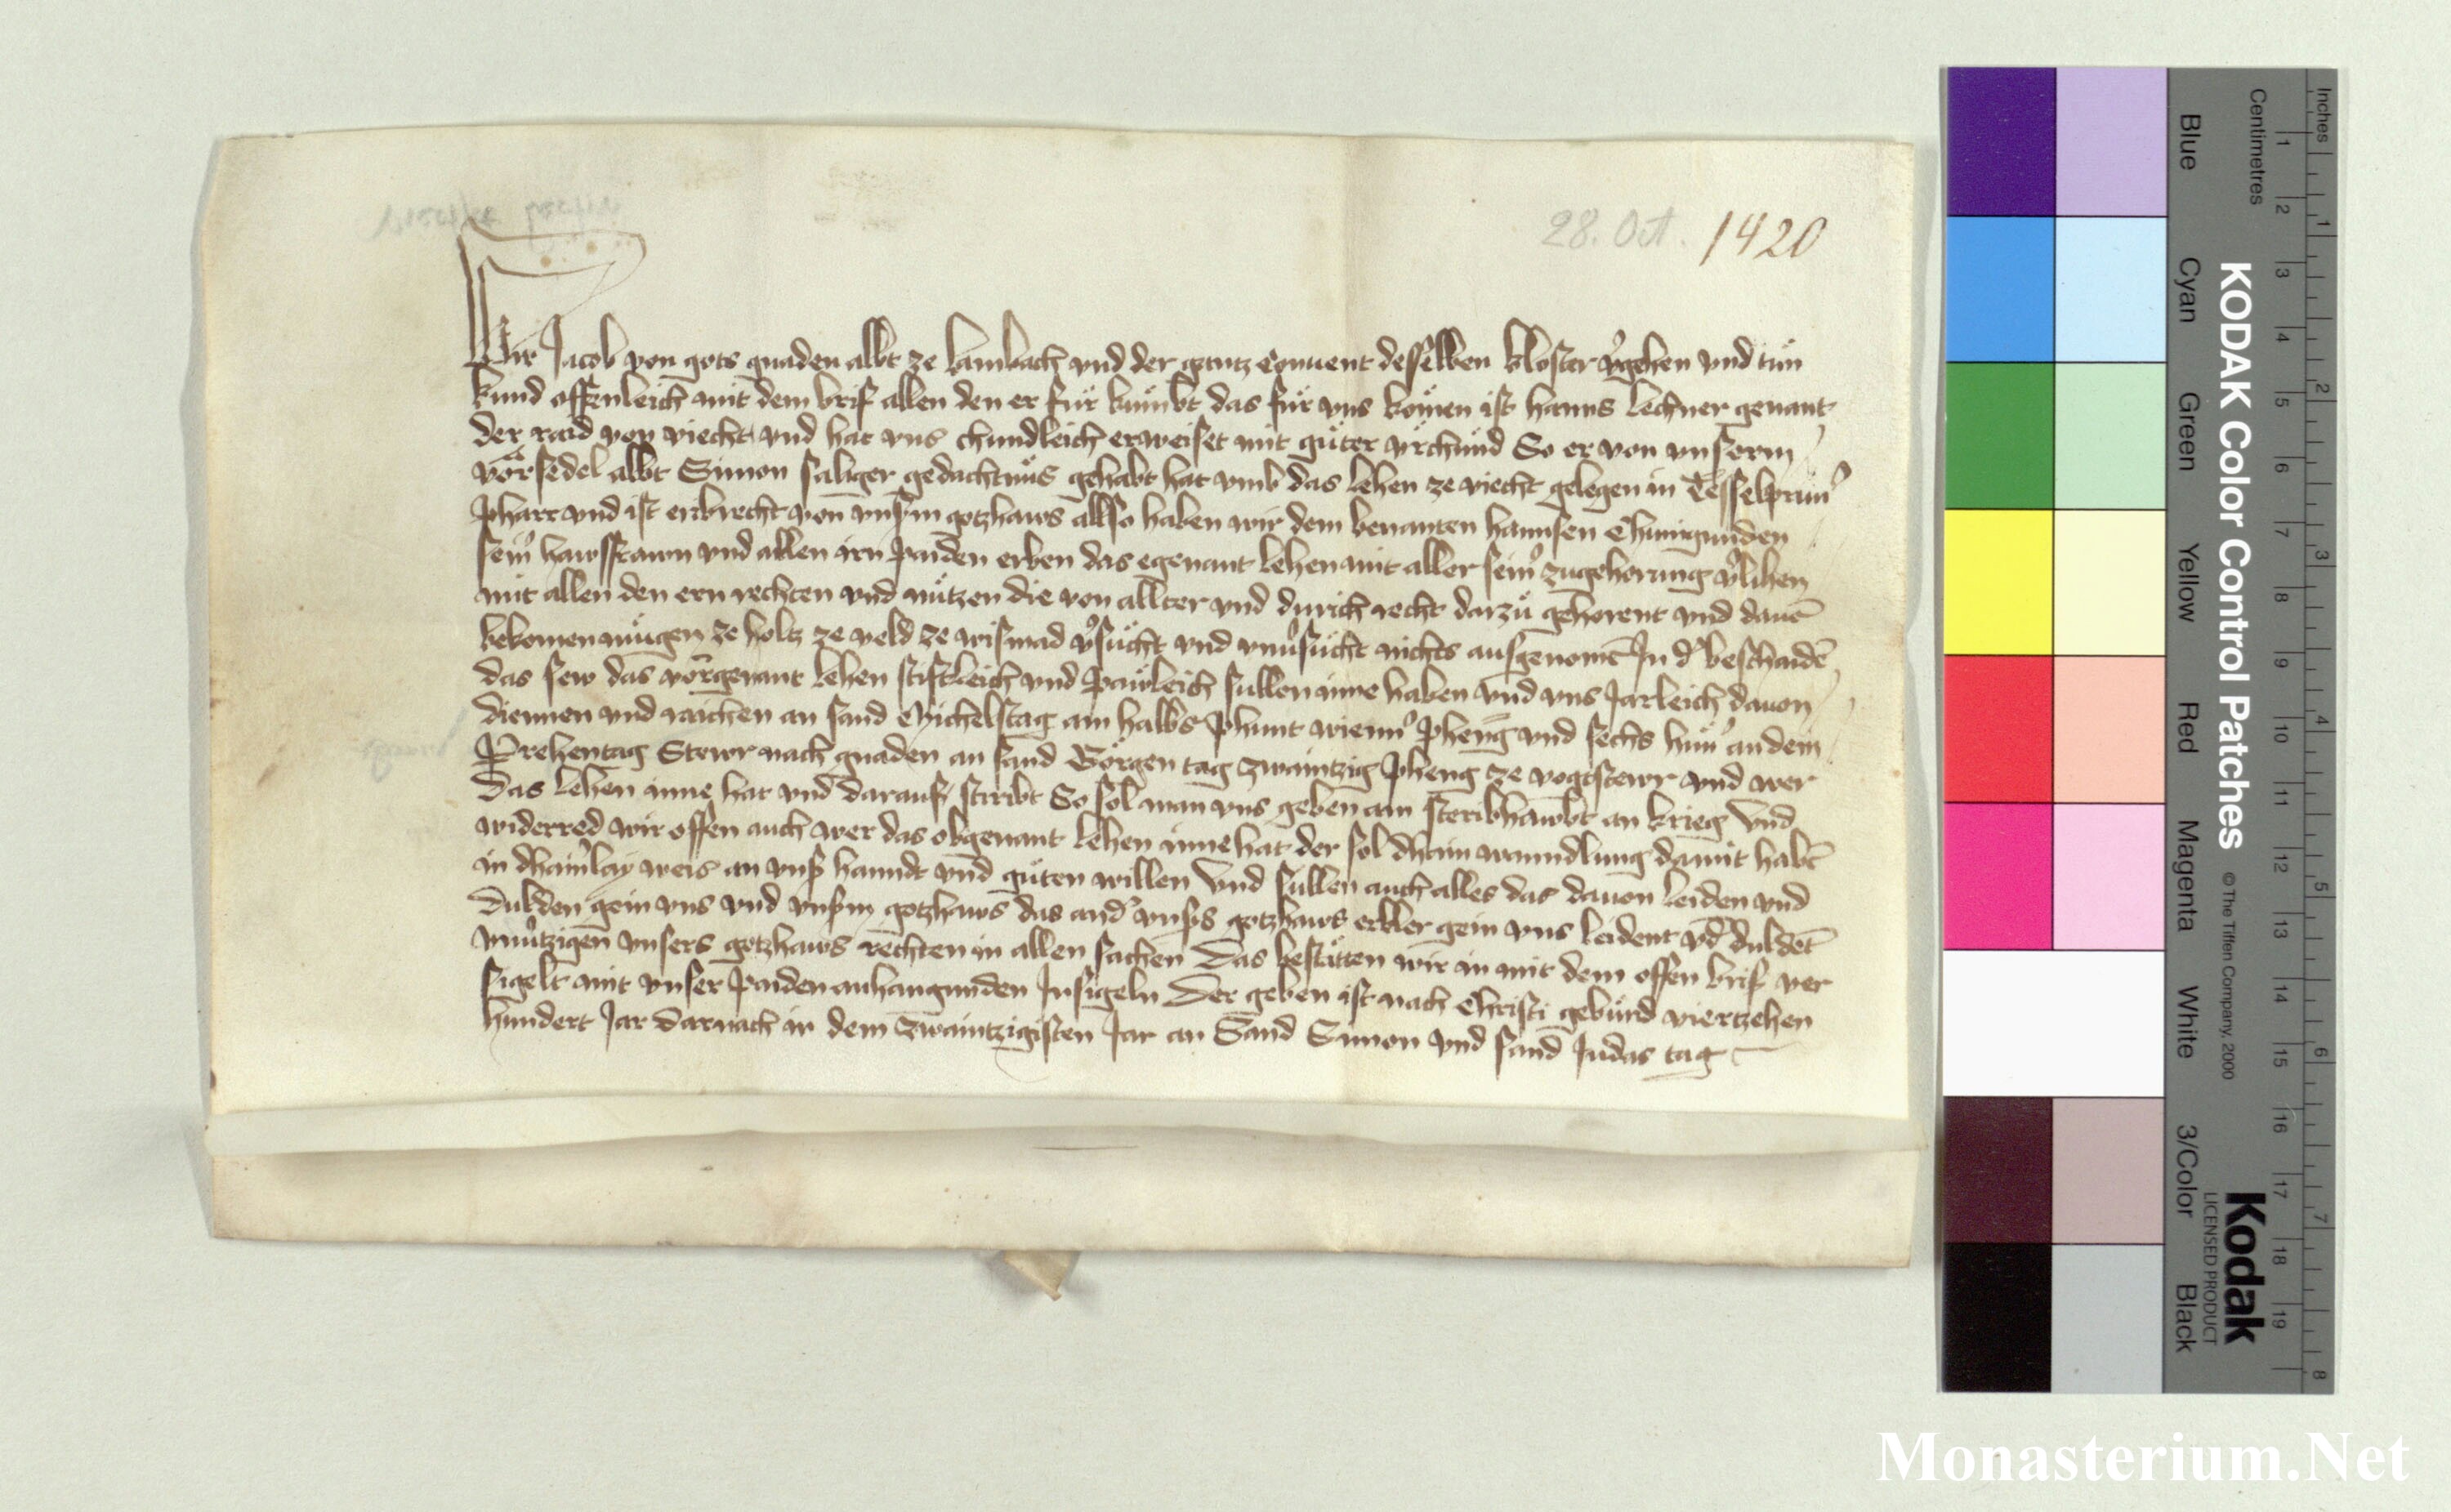 28. Oct. 1420
Wir Jacob von gots gnaden abbt ze Lambach vnd der gantz Conuent desselben kloster v'gehen vnd tün
kund offenleich mit dem brif allen den er für kumbt das für vns komen ist hanns Lechner genant
der raid von viecht vnd hat vns chundleich erweiset mit güter vrchund So er von vnserm
vorfedel abbt Simon saliger gedachtnüs gehabt hat vmb das Lehen ze viecht gelegen in Desselprun'
pharr vnd ist erbrecht von vnserm gotzhaws allso haben wir dem benanten hannsen Chunigunden
sein' hawsfrawn vnd allen irn paiden erben das egenant Lehen mit aller sein' zugehorung v'lihen
mit allen den ern rechten vnd nützen die von allter vnd durich recht darzü gehorent vnd dauō
bekomen mügen ze holtz ze veld ze wismad v'sücht vnd vnu'sücht nichts ausgenomē In d' beschaidē
das sew das vorgenant Lehen stiftleich vnd pawleich sullen inne haben vnd vns Jarleich dauon
diennen vnd raichen an sand Michelstag ain halbs phunt wienn' pheng vnd sechs hün' an dem
Prehentag Stewr nach gnaden an sand Görgen tag zwaintzig pheng ze vogtstewr vnd wer
Das Lehen inne hat vnd darauf stiribt So sol man vns geben ain steribhawbt an krieg Vnd
widerred wir offen auch wer das obgenant Lehen inne hat der sol dhain wanndlung damit habē
in dhainlay weis an vnser hanndt vnd güten willen Vnd süllen auch alles das dauon leiden vnd
Dulden gein vns vnd vnserm gotzhaws das and' vnsers gotzhaws erbler gein vns leident vd duldēt
vnuertzigen vnsers gotzhaws rechten in allen sachen Das bestätten wir in mit dem offen brif ver
sigelt mit vnser paiden anhangunden Insigeln Der geben ist nach Christi gebürd viertzehen
hundert Jar darnach in dem zwaintzigisten Jar an Sand Simon vnd sand Judas tag
Inches
Centimetres
1 2 3 4 5 6 7 8
1 2 3 4 5 6 7 8 9 10 11 12 13 14 15 16 17 18 19
KODAK Color Control Patches © The Tiffen Company, 2000
Kodak
LICENSED PRODUCT
Blue Cyan Green Yellow Red Magenta White 3/Color Black
Monasterium.Net